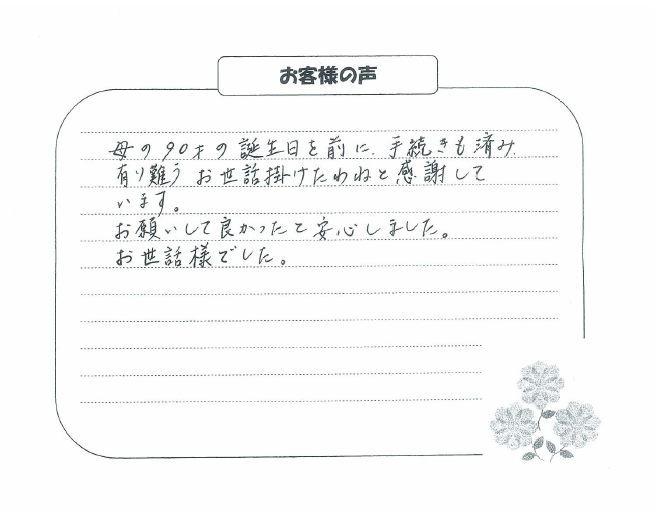 お客様の声
母の90才の誕生日を前に、手続きも済み
有り難う お世話掛けたわねと感謝して
います。
お願いして良かったと安心しました。
お世話様でした。